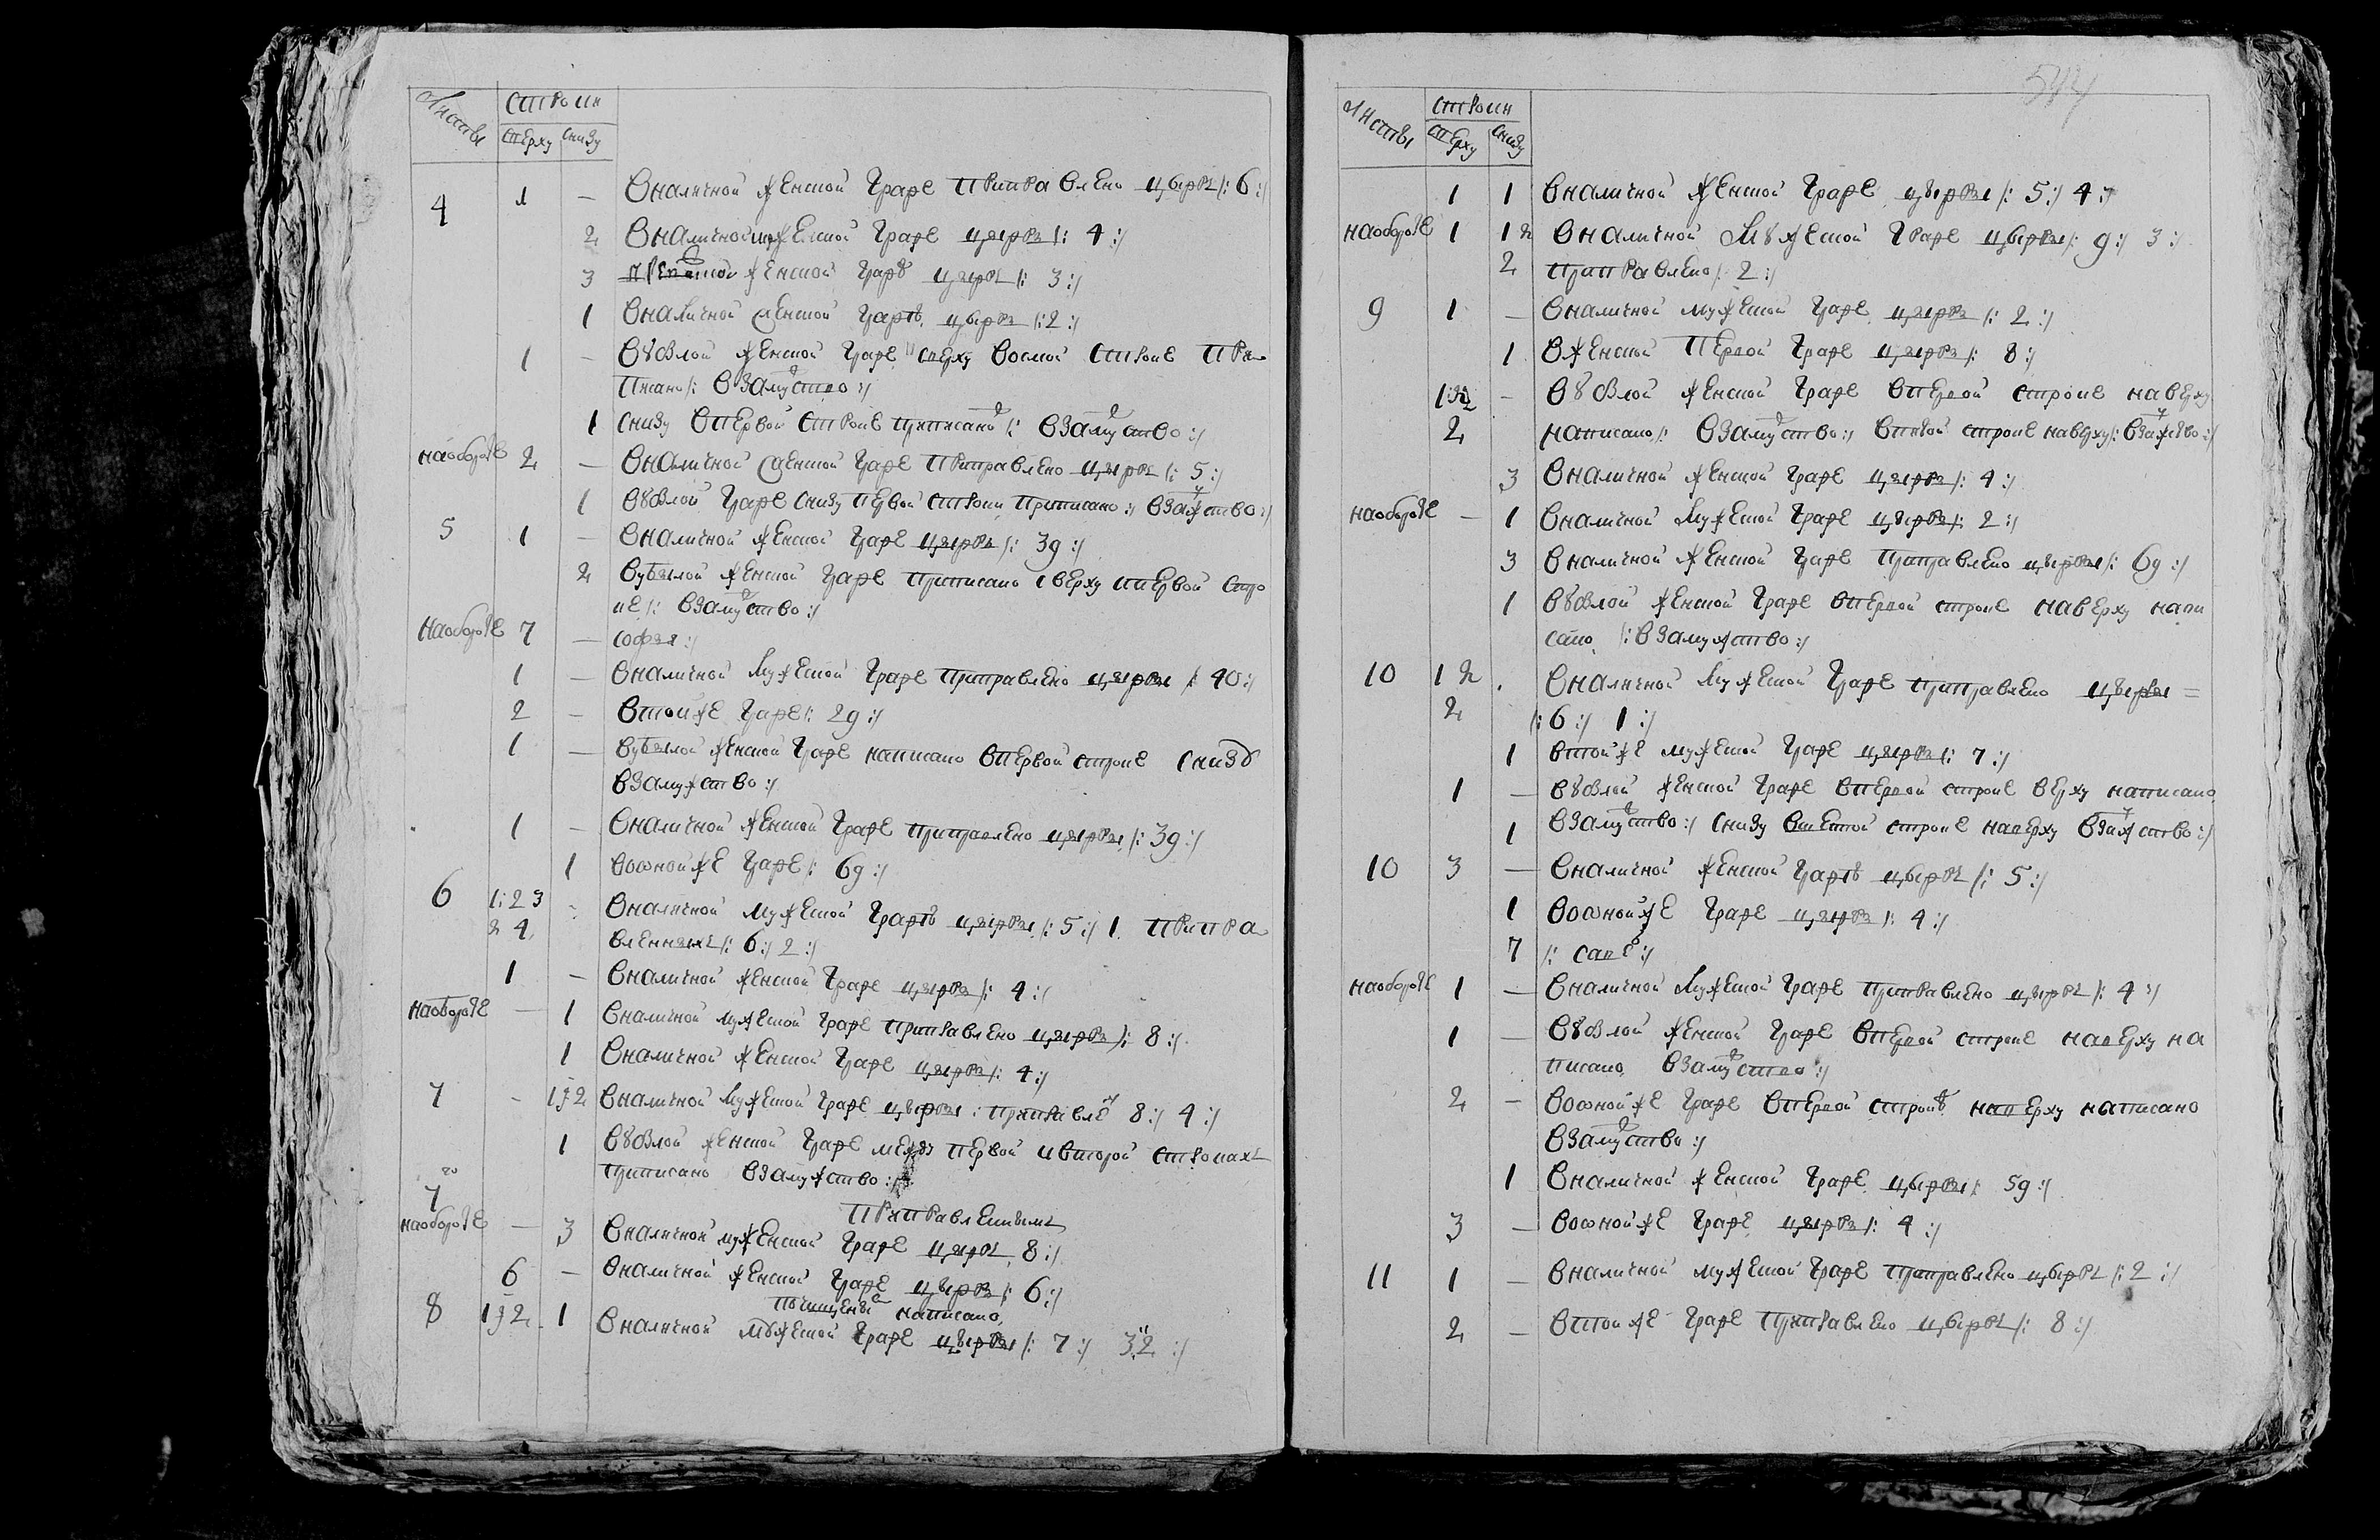 листы строки
сверху снизу
4 1 — В наличной женской графе приправлено цыфръ /: 6 :/
2 В наличной мужеской графе цыфръ /: 4 :/
3 женской графѣ цыфръ /: 3 :/
1 В наличной женской графѣ цыфръ /: 2 :/
1 — В убылой женской графе сверху восмой строке при
писано /: в замужство :/
1 снизу в первой строке приписано /: в замужство :/
на обороте 2 — В наличной женской графе приправлено цыфръ /: 5 :/
1 в убылой графе снизу первой строки приписано :/ в замужство :/
5 1 — В наличной женской графе цыфръ /: 39 :/
2 В убылой женской графе приписано сверху и первой стро
ке /: в замужство :/
На обороте 7 — софья :/
1 — В наличной мужеской графе приправлено цыфры /: 40 :/
2 — в той же графе /: 29 :/
1 — в убылой женской графе написано в первой строке снизу
в замужство :/
1 — В наличной женской графе приправлено цыфры /: 39 :/
1 во оной же графе /: 69 :/
6 1: 2 3 - В наличной мужеской графѣ цыфры /: 5 :/ 1 приправ
2 4 вленныхъ /: 6 :/ 2 :/
1 — В наличной женской графе цыфръ /: 4 :/
на обороте — 1 В наличной мужеской графе приправлено цыфръ /: 8 :/
1 В наличной женской графе цыфръ /: 4 :/
7 - 1 j 2 В наличной мужеской графе цыфры : приправлено 8 :/ 4 :/
1 В убылой женской графе межъ первой и второй строкахъ
приписано в замужство :/
7 го приправленнымъ
на обороте — 3 В наличной мужеской графе цыфръ 8 :/
6 — В наличной женской графе цыфръ /: 6 :/
по чищеньа написано
8 1 j 2 1 В наличной мужеской графе цыфры /: 7 :/ 3 2 :/
544
листы строки
сверху снизу
1 1 В наличной женской графе цыфры /: 5 :/ 4 :/
на обороте 1 1 2 В наличной мужеской графе цыфры /: 9 :/ 3 :/
2 приправлено /: 2 :/
9 1 — В наличной мужеской графе цыфръ /: 2 :/
1 В женской первой графе цыфръ /: 8 :/
— В убылой женской графе в первой строке наверху
2 написано /: в замужство :/ строке наверху /: в замужство :/
3 В наличной женской графе цыфръ /: 4 :/
на обороте — 1 В наличной мужеской графе цыфръ /: 2 :/
3 В наличной женской графе приправлено цыфры /: 69 :/
1 В убылой женской графе в первой строке наверху напи
сано /: в замужство :/
10 1 2 . В наличной мужеской графе приправлено цыфры =
2 /: 6 :/ 1 :/
1 в той же мужеской графе цыфръ /: 7 :/
1 — в убылой женской графе в первой строке верху написано
1 в замужство :/ снизу в шестой строке наверху в замужство :/
10 3 — В наличной женской графѣ цыфръ /: 5 :/
1 во оной же графе цыфръ /: 4 :/
7 /: саве :/
на обороте 1 — В наличной мужеской графе приправлено цыфръ /: 4 :/
1 — В убылой женской графе в первой строке наверху на
писано в замужство :/
2 — во оной же графе в первой строкѣ наверху написано
в замужство :/
1 В наличной женской графе цыфры /: 59 :/
3 — во оной же графе цыфръ /: 4 :/
11 1 — В наличной мужеской графе приправлено цыфръ /: 2 :/
2 — в той же графе приправлено цыфръ /: 8 :/